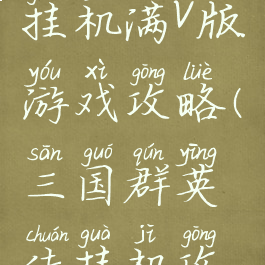 挂机满V版
yóu xì gōng lüè
游戏攻略(
sān guó qún yīng
三国群英
chuán guà jī gōng
传挂机攻